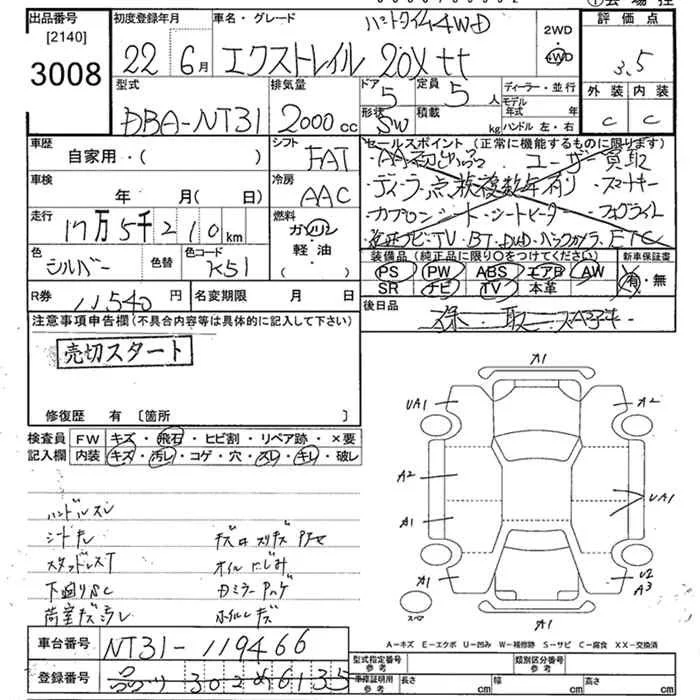 出品番号
[2140]
3008
初度登録年月
22 6月
車名・グレード
パートタイム4WD
エクストレイル 20Xtt
2WD
4WD
評価点
3.5
外装 内装
C C
型式
DBA-NT31
排気量
2000cc
ドア
5
定員
5人
形状
SW
積載
kg
ディーラー・並行
モデル年式 年
ハンドル 左・右
車歴
自家用・( )
シフト
FAT
車検
年 月( 日)
冷房
AAC
走行
17万5千210km
燃料
ガソリン
軽油
( )
色
シルバー
色替
色コード
K51
R券
11,540円
名変期限 月 日
セールスポイント(正常に機能するものに限ります)
・AA初出品 ・ユーザー買取
・スマートキー
・シートヒーター・フォグライト
TV・BT・DVD・バックカメラ・ETC
装備品(純正品に限り○をつけてください)
新車保証書
PS PW ABS エアB AW
SR ナビ TV 本革
有・無
後日品
注意事項申告欄(不具合内容等は具体的に記入して下さい)
売切スタート
修復歴 有〔箇所 〕
検査員記入欄
FW キズ・飛石・ヒビ割・リペア跡・×要
内装 キズ・汚レ・コゲ・穴・スレ・キレ・破レ
ハンドルスレ
シートキレ
スタッドレスT
下廻りSC
荷室キズ汚レ
オイルにじみ
ホイルキズ
A1
UA1
A2
A2
A1
UA1
A1
U2
A3
A1
スペア
A−キズ E−エクボ U−凹み W−補修跡 S−サビ C−腐食 XX−交換済
車台番号
NT31-119466
登録番号
型式指定番号
参考
類別区分番号
参考
車庫証明用
参考
長さ cm
幅 cm
高さ cm